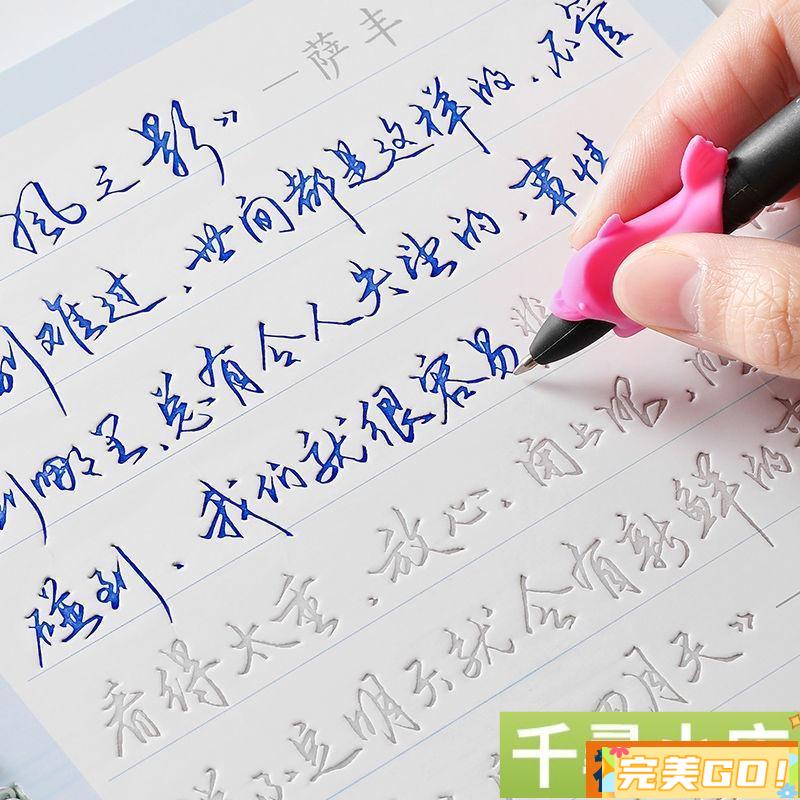 风之影》—萨丰
别难过、世间都是这样的、不管
到哪里、总有令人失望的、事情
碰到、我们就很容易难
看得太重、放心、闭上眼、
不定是明天就会有新鲜的
四月天》—
千寻
完美GO!